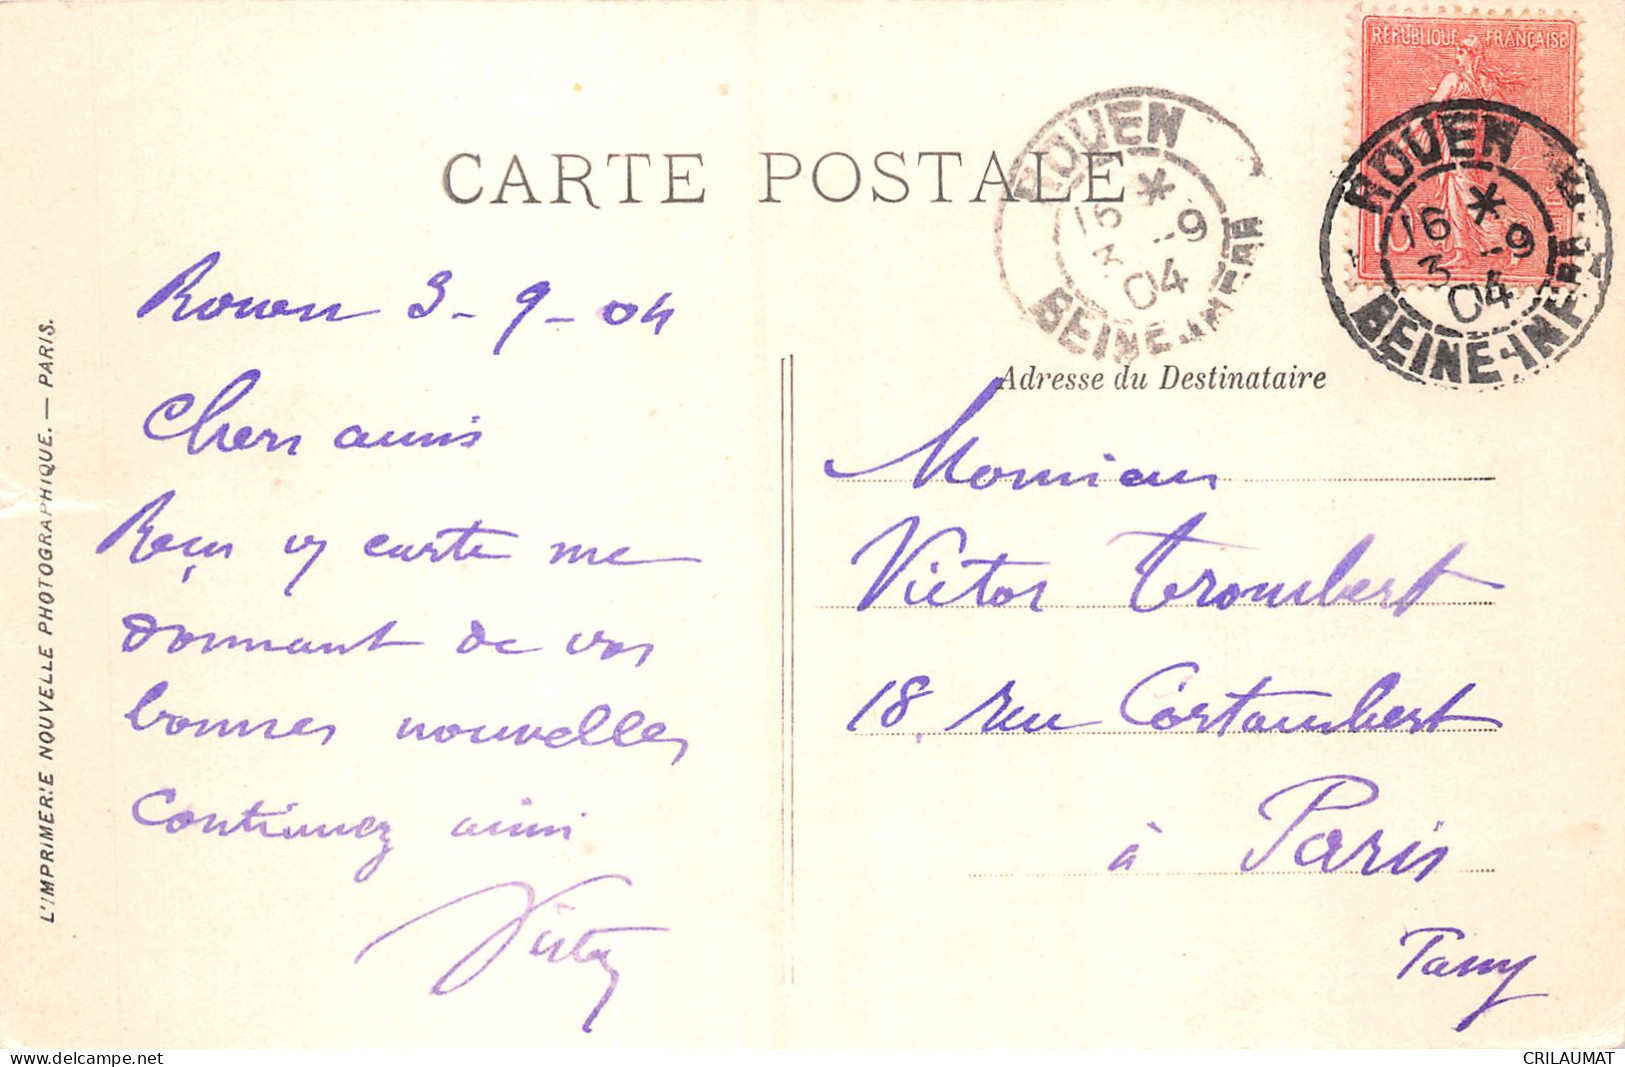 CARTE POSTALE
RÉPUBLIQUE FRANÇAISE
ROUEN
16 * 3 -9 04
SEINE-INFRE
ROUEN
16 * 3 -9 04
SEINE-INFRE
Rouen 3-9-04
Chers amis
Reçu vs carte me
donnant de vos
bonnes nouvelles
Continuez ainsi
Adresse du Destinataire
Monsieur
Victor Trombert
18, rue Cortambert
à Paris
Passy
L'IMPRIMERIE NOUVELLE PHOTOGRAPHIQUE. — PARIS.
CRILAUMAT
www.delcampe.net